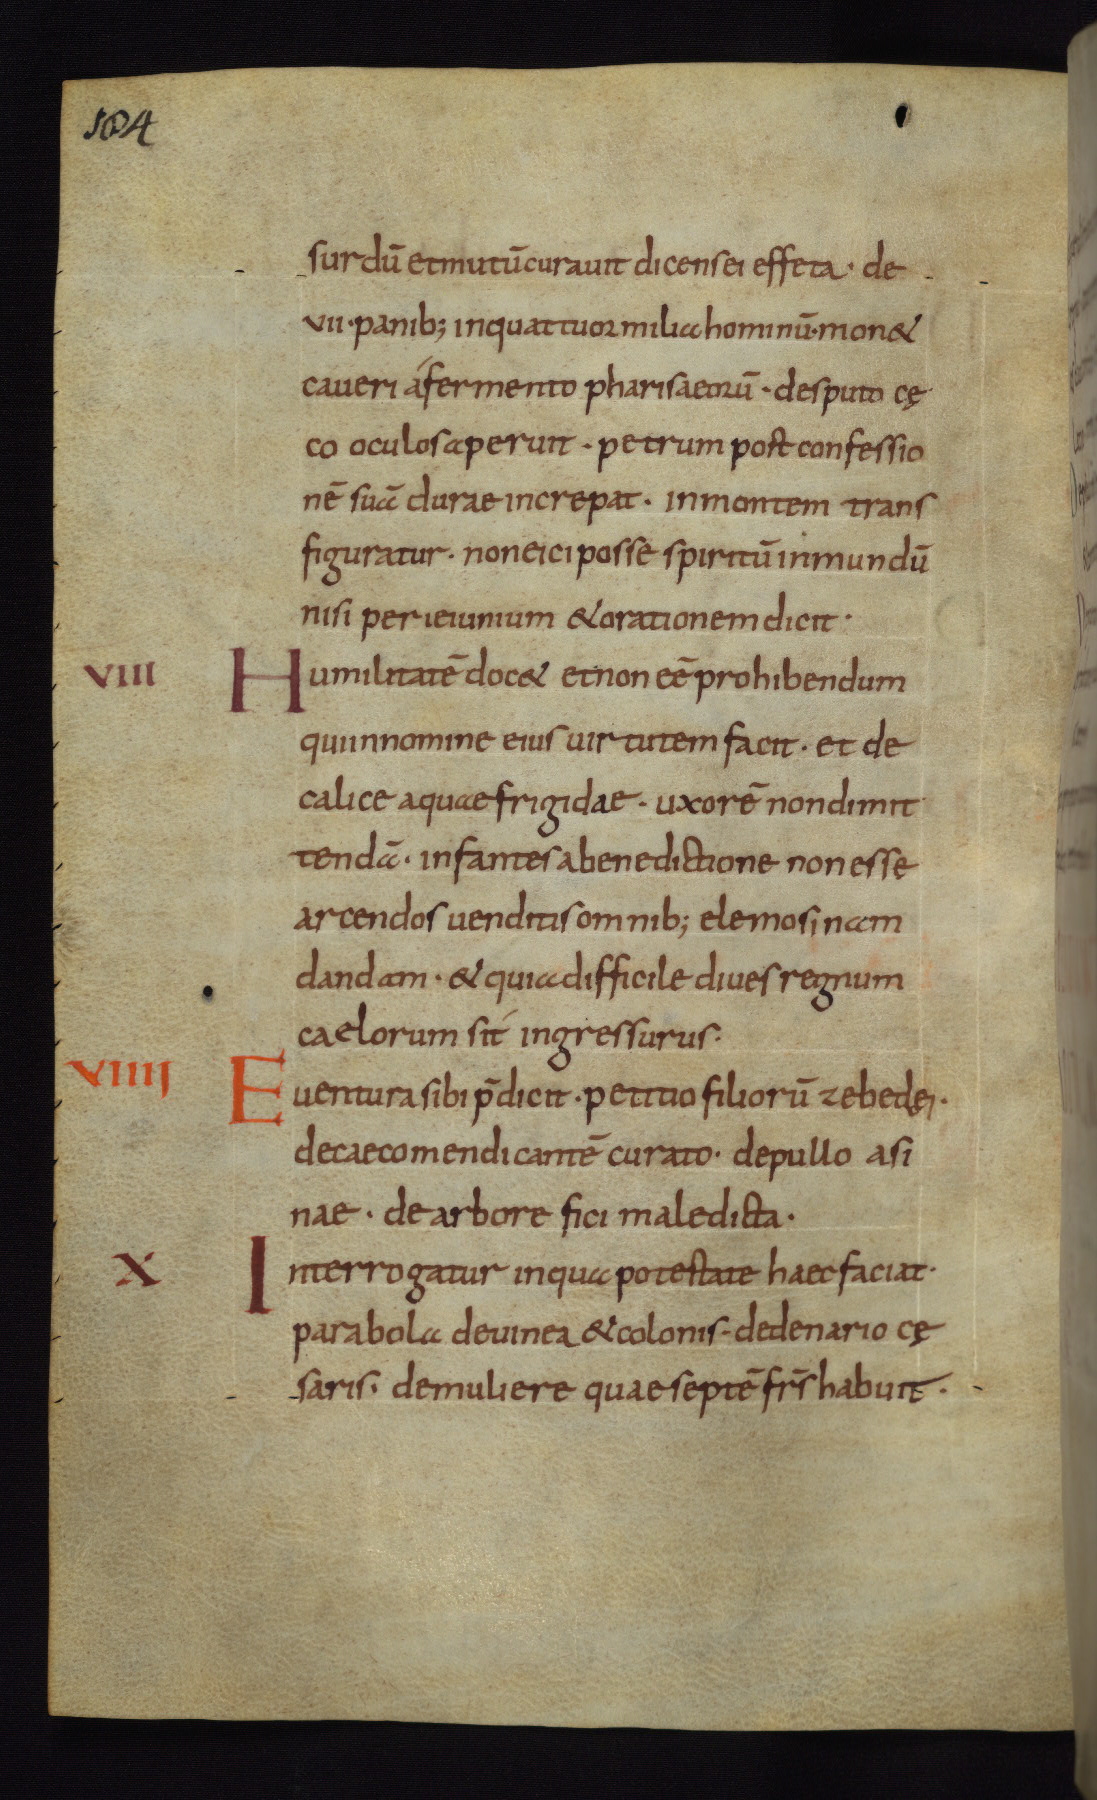 184
surdū et mutū curauit dicens ei effeta · de
vii · panib; in quattuor milia hominū · mon&
caueri á fermento pharisaeorū · de sputo cę
co oculos aperuit · petrum post confessio
nē suā durae increpat · in montem trans
figuratur · non eici posse spiritū inmundū
nisi per ieiunium & orationem dicit ·
VIII Humilitatē doc& et non eē prohibendum
qui in nomine eius uirtutem facit · et de
calice aquae frigidae · uxorē non dimit
tendā · infantes a benedictione non essę
arcendos uenditis omnib; elemosinam
dandam · & quia difficile diues regnum
caelorum sit ingressurus ·
VIIII Euentura sibi p̄dicit · petitio filiorū zebedęi ·
de caeco mendicantē curato · de pullo asi
nae · de arbore fici maledicta ·
X Interrogatur in qua potestate haec faciat ·
parabola de uinea & colonis · de denario cę
saris · de muliere quae septē fr̄s habuit ·